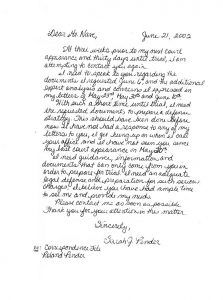 Dear Mr. Nave, June 21, 2002
At three weeks prior to my next court
appearance and thirty days until trial, I am
attempting to contact you again.
I need to speak to you regarding the
documents I requested June 6th and the additional
expert analysis and concerns I expressed in
my letters of May 23rd, May 28th and June 6th.
With such a short time until trial, I need
the requested documents to prepare a defense
strategy. This should have been done before
now. I have not had a response to any of my
letters to you, being sent to
your office and I have not seen you since
my last court appearance in May
I need guidance, information, and
documents that can only come from you in
order to prepare for trial. I need an adequate
legal defense and preparation for such serious
charges. I believe you have had ample time
to see me and provide my needs.
Please contact me as soon as possible.
Thank you for your attention in this matter.
Sincerely,
Sarah J. Pender
cc: Correspondence File
Roland Pender